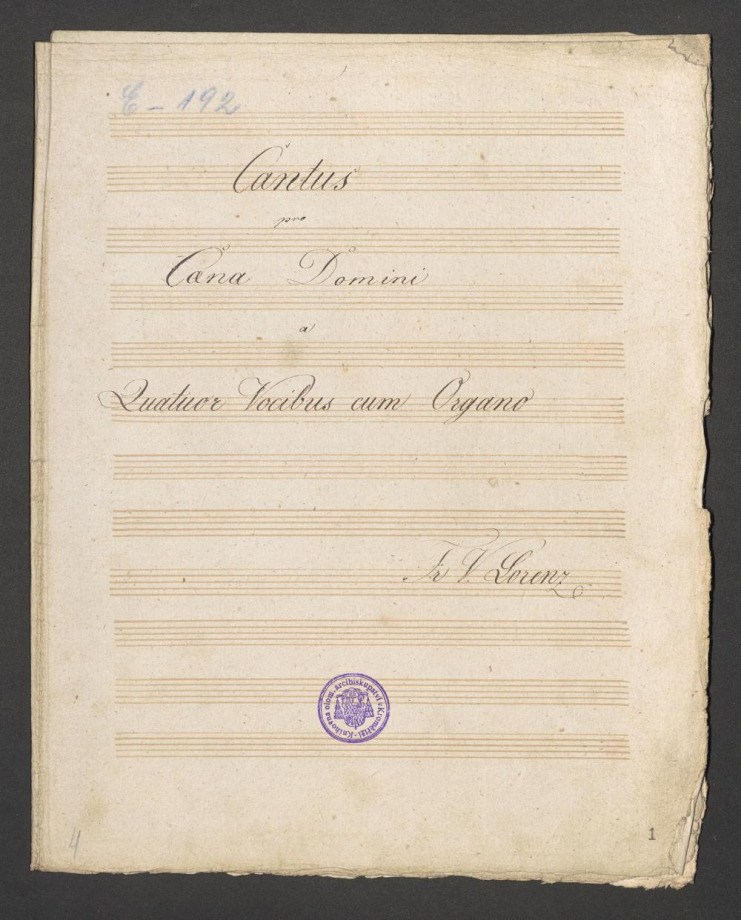 E - 192
Cantus
pro
Cœna Domini
a
Quatuor Vocibus cum Organo
Fr. V. Lorenz
Knihovna olom. arcibiskupství v Kroměříži
4
1